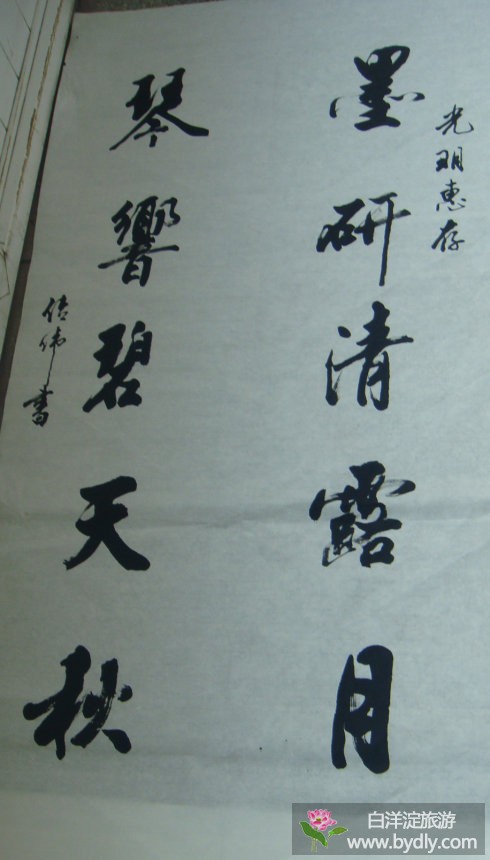 光明惠存
墨研清露月
琴響碧天秋
信偉書
白洋淀旅游
www.bydly.com